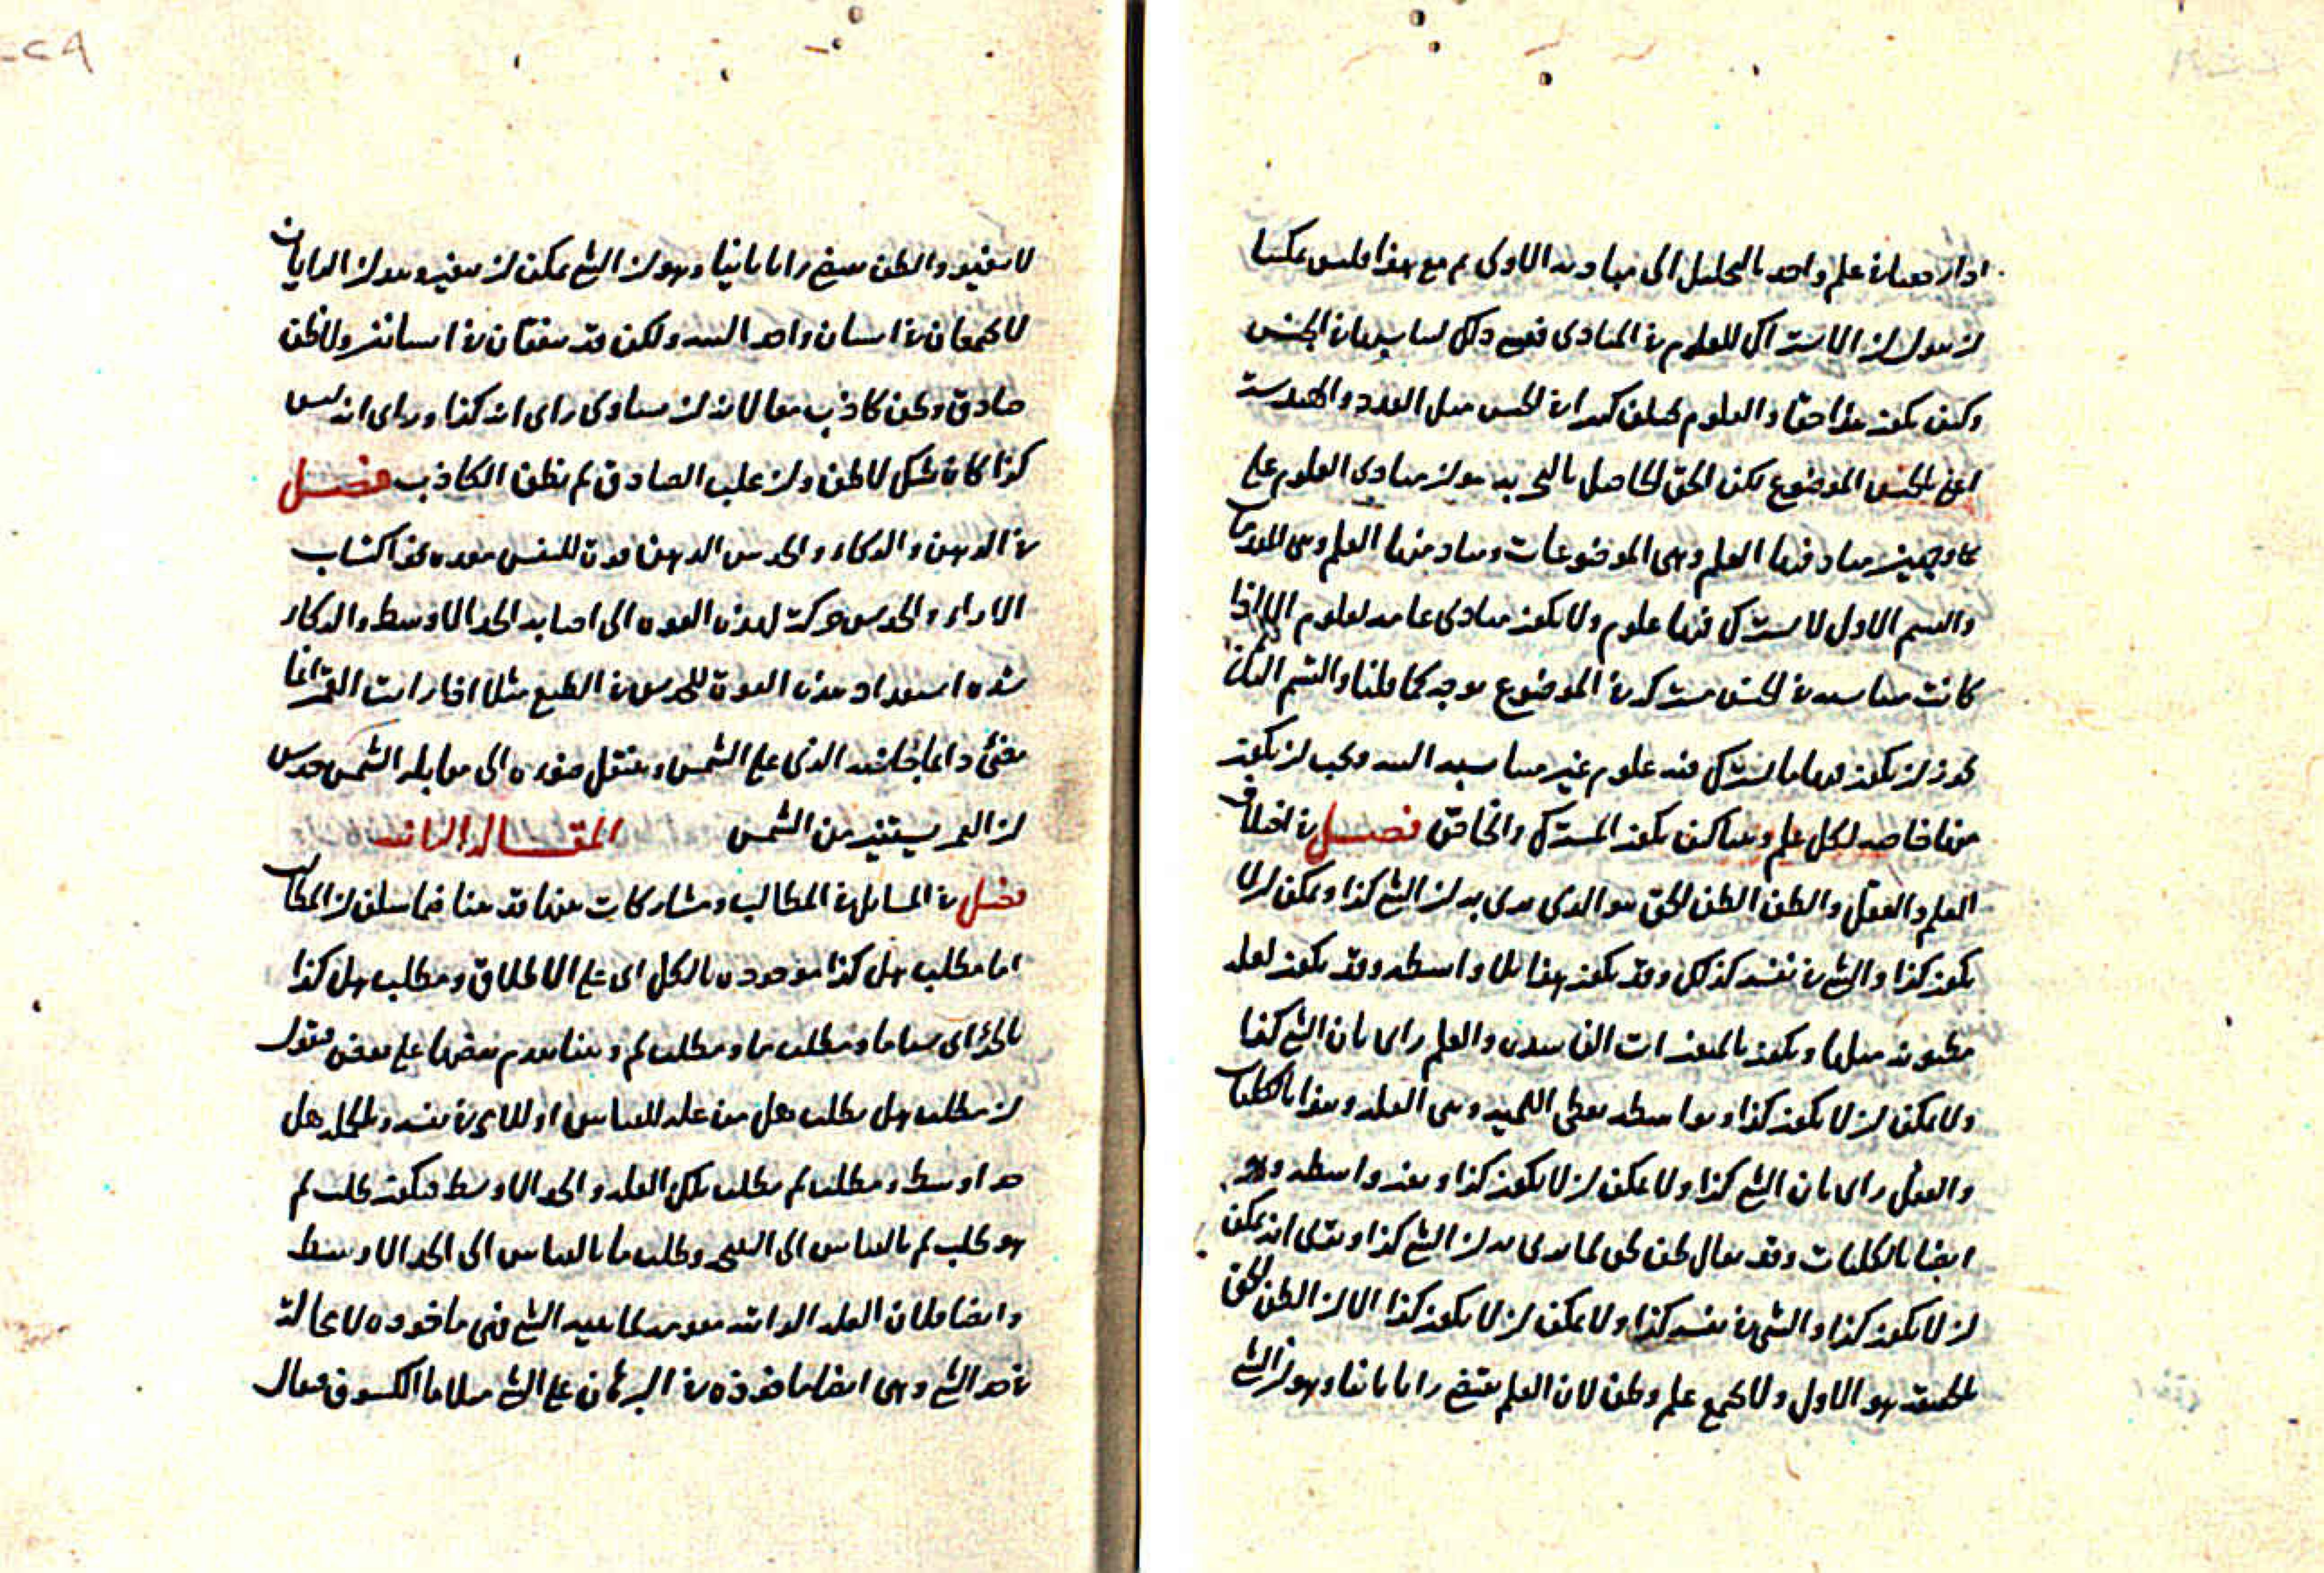 اذا رجعنا في علم واحد بالتحليل الى مباديه الاولى ثم مع هذا فليس يمكننا
ان نقول ان الاشتراك للعلوم في المبادى فقوع ذلك لها بل لها في الجنس
وكيف يكون هذا حقا والعلوم تختلف كثيرا في الجنس مثل العدد والهندسة
اعني بالجنس الموضوع لكن الحق الحاصل بالتجربة هو ان مبادى العلوم على
وجهين مباد فيها العلم وهي الموضوعات ومباد منها العلم وهي المقدمات
والقسم الاول لا يشترك فيها علوم ولا يكون مبادى عامة لعلوم الا اذا
كانت مناسبة في الجنس مشتركة في الموضوع بوجه كما قلنا والقسم الثاني
يجوز ان يكون فيها ما يشترك فيه علوم غير مناسبة البتة ويجب ان يكون
منها خاصة لكل علم وبينا كيف يكون المشترك والخاص فصل في اختلاف
العلم والعقل والظن الظن الحق هو الذي يرى به ان الشئ كذا ويمكن ان لا
يكون كذا والشئ في نفسه كذلك وقد يكون هذا بلا واسطة وقد يكون لعلة
مظنونة مثلها ويكون بالمتغيرات الفاسدة والعلم راى بان الشئ كذا
ولا يمكن ان لا يكون كذا وبواسطة يعطي اللمية وهي العلة وهذا بالكليات
والعقل راى بان الشئ كذا ولا يمكن ان لا يكون كذا وبغير واسطة وهو
ايضا بالكليات وقد يقال ظن حق لما يرى به ان الشئ كذا ونسى انه يمكن
ان لا يكون كذا والشئ في نفسه كذا ولا يمكن ان لا يكون كذا الا ان الظن الحق
بالحقيقة هو الاول ولا يجمع علم وظن لان العلم يقتضي رايا ثابتا وهو ان الشئ
لا يتغير والظن يقتضي رايا ثانيا وهو ان الشئ يمكن ان يتغير وهذان الرايان
لا يجتمعان في انسان واحد البتة ولكن قد يتفقان في انسانين ولا ظن
صادق وظن كاذب معا لانه ان تساوى راى انه كذا وراى انه ليس
كذا كان شك لا ظن وان غلب الصادق لم يظن الكاذب فصل
في الذهن والذكاء والحدس الذهن قوة للنفس معدة نحو اكتساب
الاراء والحدس حركة لهذه القوة الى اصابة الحد الاوسط والذكاء
شدة استعداد هذه القوة للحدس في الطبع مثلا اذا رات القمر انما
يضئ دائما جانبه الذي على الشمس وينتقل ضوءه الى مقابلة الشمس حدس
ان القمر يستنير من الشمس المقالة الثانية
فصل في المسايل في المطالب ومشاركات بينها قد بينا فيما سلف ان المطالب
اما مطلب هل كذا موجودة بالكل اى على الاطلاق ومطلب هل كذا
بالجزء اى شيئا ما ومطلب ما ومطلب لم وبينا تقدم بعضها على بعض فنقول
ان مطلب هل يطلب هل من علة للقياس او للامر في نفسه وبالجملة هل
حد اوسط ومطلب لم يطلب تلك العلة والحد الاوسط فيكون طلب لم
هو طلب لم بالقياس الى النتيجة وطلب ما بالقياس الى الحد الاوسط
وايضا فلان العلة الذاتية مقومة لماهية الشئ فهي ماخوذة لا محالة
في حد الشئ وهي ايضا ماخوذة في البرهان على الشئ مثلا ما الكسوف فيقال